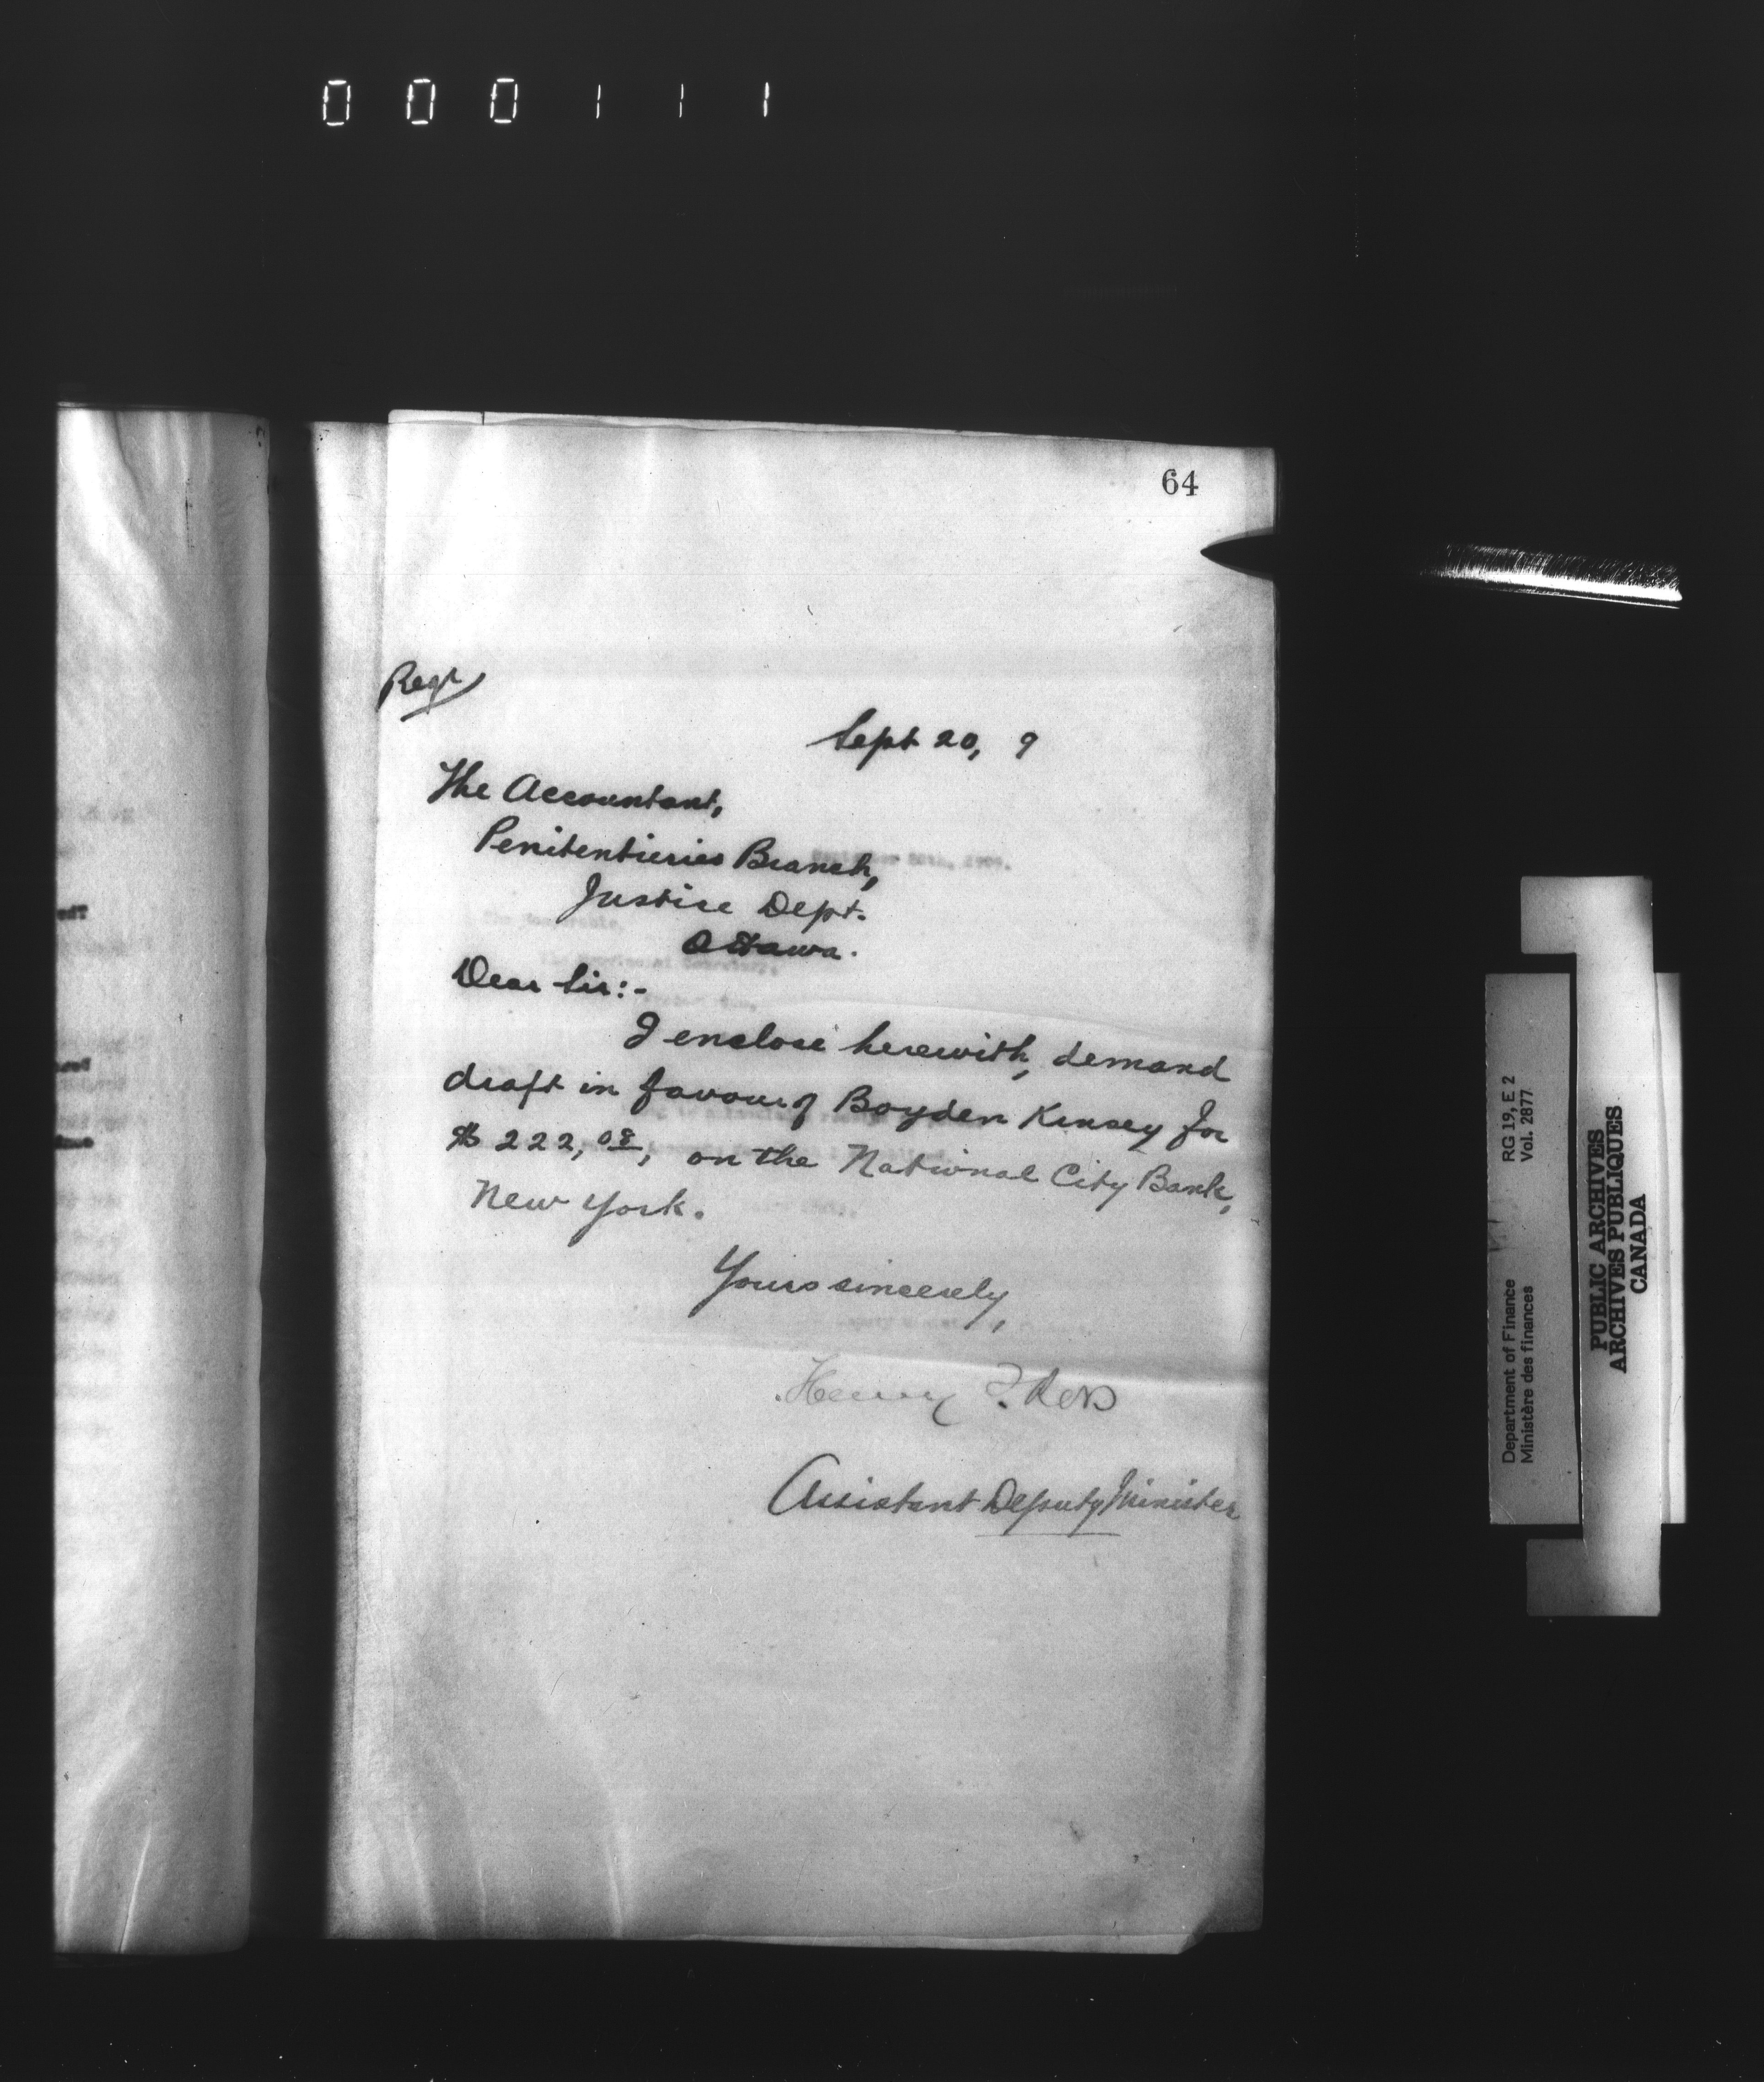 000111
64
Regr
Sept 20, 9
The Accountant,
Penitentiaries Branch,
Justice Dept.
Ottawa.
Dear Sir:-
I enclose herewith, demand
draft in favour of Boyden Kinsey for
$222,08, on the National City Bank,
New York.
Yours sincerely,
Henry T. Ross
Assistant Deputy Minister
Department of Finance RG 19, E 2
Ministère des finances Vol. 2877
PUBLIC ARCHIVES
ARCHIVES PUBLIQUES
CANADA